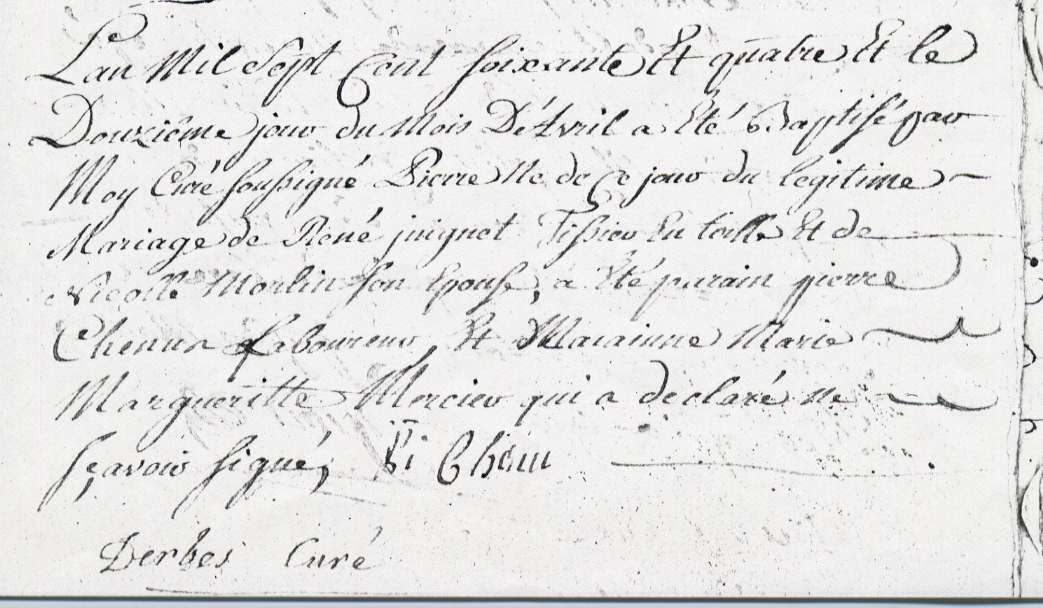 L'an Mil Sept Cent soixante Et quatre Et le
Douzième jour du Mois D'Avril a Eté Baptisé par
Moy Curé soussigné Pierre Né de Ce jour du légitime
Mariage de René juignet Tissier En toille Et de
Nicolle Morlin son Epouse, a Eté parain pierre
Chenu Laboureur, Et Maraine Marie
Margueritte Mercier qui a déclaré ne
sçavoir signé, Pi Chenu
Derbes Curé